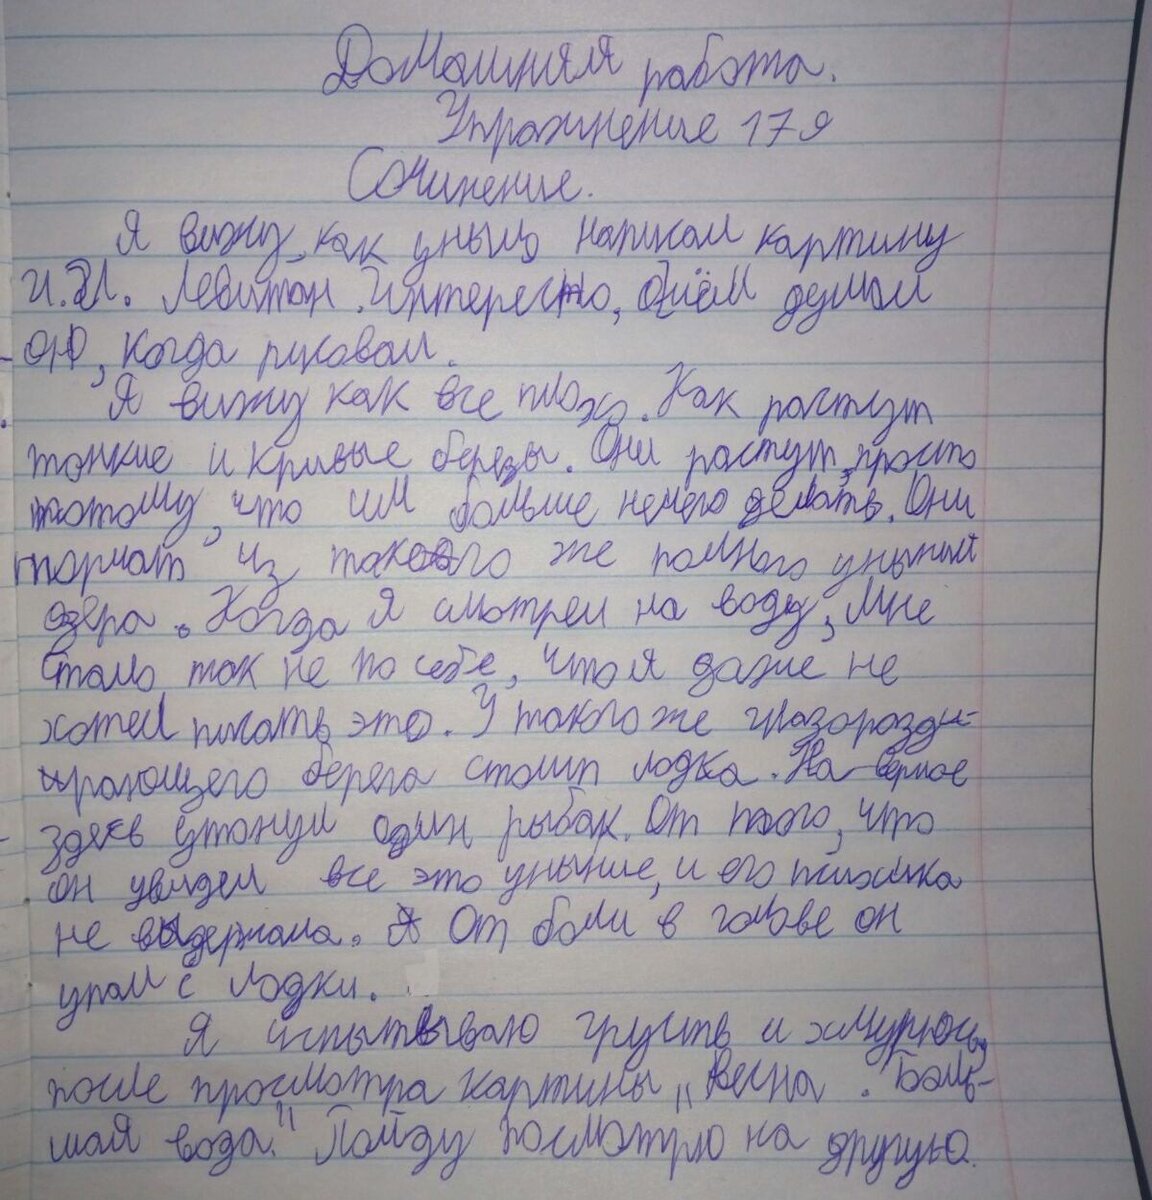 Домашняя работа.
Упражнение 179
Сочинение.
Я вижу, как уныло написал картину
И.И. Левитан. Интересно, о чём думал
он, когда рисовал.
Я вижу как все плохо. Как растут
тонкие и кривые березы. Они растут, просто
потому, что им больше нечего делать. Они
торчат из такого же полного уныния
озера. Когда я смотрел на воду, мне
стало так не по себе, что я даже не
хотел писать это. У такого же
берега стоит лодка. На верное
здесь утонул один рыбак. От того, что
он увидел все это уныние, и его психика
не выдержала. От боли в голове он
упал с лодки.
Я испытываю грусть и хмурюсь,
после просмотра картины "Весна. Боль-
шая вода." Пойду посмотрю на другую.